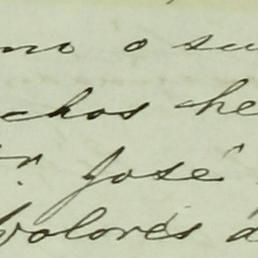 mo o su
chos he
r. José
Dolores d